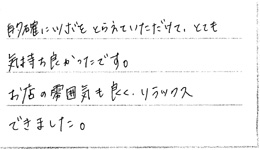 的確にツボを とらえていただけて、とても
気持ち良かったです。
お店の雰囲気も良く、リラックス
できました。